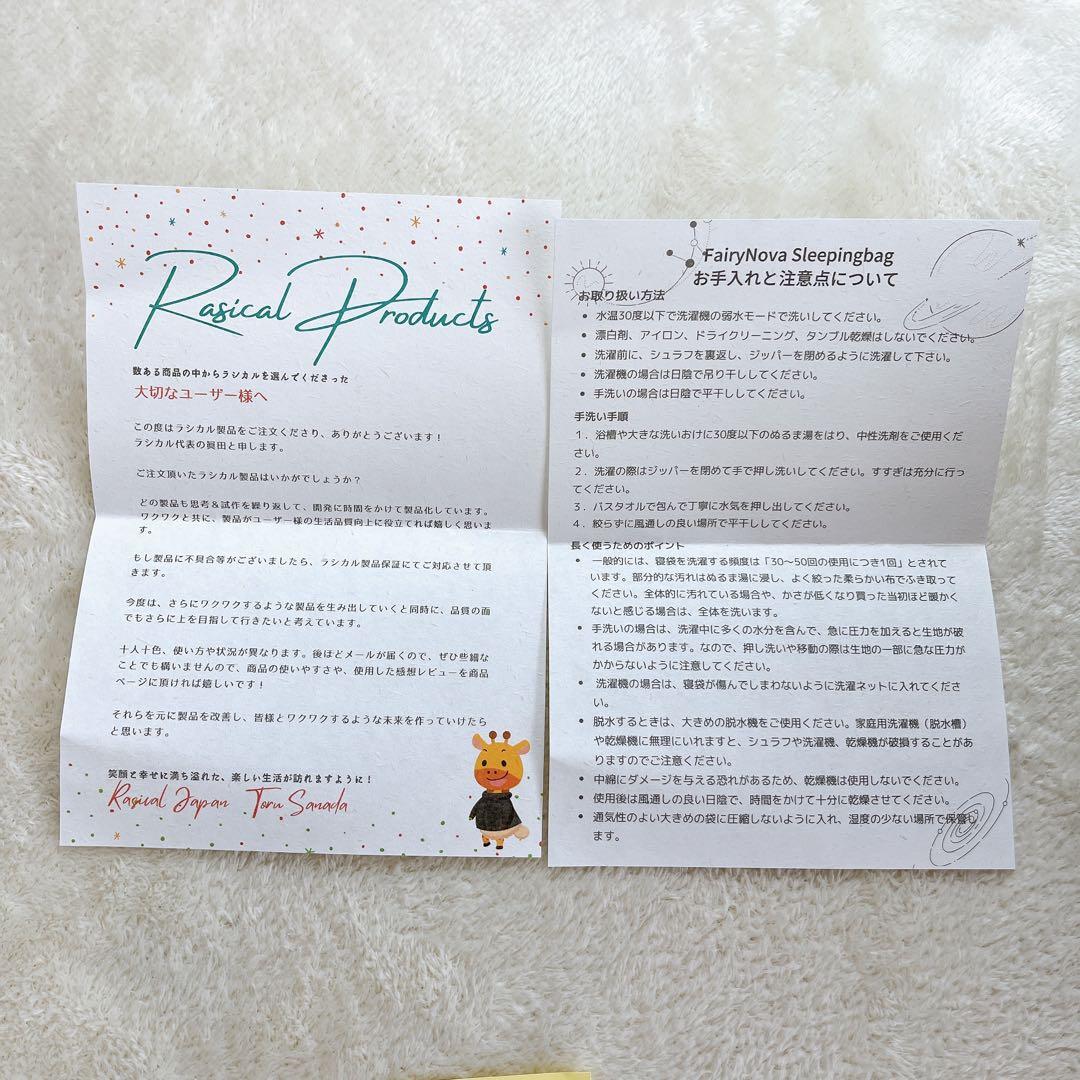 Rasical Products
数ある商品の中からラシカルを選んでくださった
大切なユーザー様へ
この度はラシカル製品をご注文くださり、ありがとうございます！
ラシカル代表の眞田と申します。
ご注文頂いたラシカル製品はいかがでしょうか？
どの製品も思考＆試作を繰り返して、開発に時間をかけて製品化しています。
ワクワクと共に、製品がユーザー様の生活品質向上に役立てれば嬉しく思いま
す。
もし製品に不具合等がございましたら、ラシカル製品保証にてご対応させて頂
きます。
今度は、さらにワクワクするような製品を生み出していくと同時に、品質の面
でもさらに上を目指して行きたいと考えています。
十人十色、使い方や状況が異なります。後ほどメールが届くので、ぜひ些細な
ことでも構いませんので、商品の使いやすさや、使用した感想レビューを商品
ページに頂ければ嬉しいです！
それらを元に製品を改善し、皆様とワクワクするような未来を作っていけたら
と思います。
笑顔と幸せに満ち溢れた、楽しい生活が訪れますように！
Rasical Japan Toru Sanada
FairyNova Sleepingbag
お手入れと注意点について
お取り扱い方法
• 水温30度以下で洗濯機の弱水モードで洗いしてください。
• 漂白剤、アイロン、ドライクリーニング、タンブル乾燥はしないでください。
• 洗濯前に、シュラフを裏返し、ジッパーを閉めるように洗濯して下さい。
• 洗濯機の場合は日陰で吊り干ししてください。
• 手洗いの場合は日陰で平干ししてください。
手洗い手順
１．浴槽や大きな洗いおけに30度以下のぬるま湯をはり、中性洗剤をご使用くだ
さい。
２．洗濯の際はジッパーを閉めて手で押し洗いしてください。すすぎは充分に行っ
てください。
３．バスタオルで包んで丁寧に水気を押し出してください。
４．絞らずに風通しの良い場所で平干ししてください。
長く使うためのポイント
• 一般的には、寝袋を洗濯する頻度は「30〜50回の使用につき1回」とされて
います。部分的な汚れはぬるま湯に浸し、よく絞った柔らかい布でふき取って
ください。全体的に汚れている場合や、かさが低くなり買った当初ほど暖かく
ないと感じる場合は、全体を洗います。
• 手洗いの場合は、洗濯中に多くの水分を含んで、急に圧力を加えると生地が破
れる場合があります。なので、押し洗いや移動の際は生地の一部に急な圧力が
かからないように注意してください。
• 洗濯機の場合は、寝袋が傷んでしまわないように洗濯ネットに入れてくださ
い。
• 脱水するときは、大きめの脱水機をご使用ください。家庭用洗濯機（脱水槽）
や乾燥機に無理にいれますと、シュラフや洗濯機、乾燥機が破損することがあ
りますのでご注意ください。
• 中綿にダメージを与える恐れがあるため、乾燥機は使用しないでください。
• 使用後は風通しの良い日陰で、時間をかけて十分に乾燥させてください。
• 通気性のよい大きめの袋に圧縮しないように入れ、湿度の少ない場所で保管し
ます。